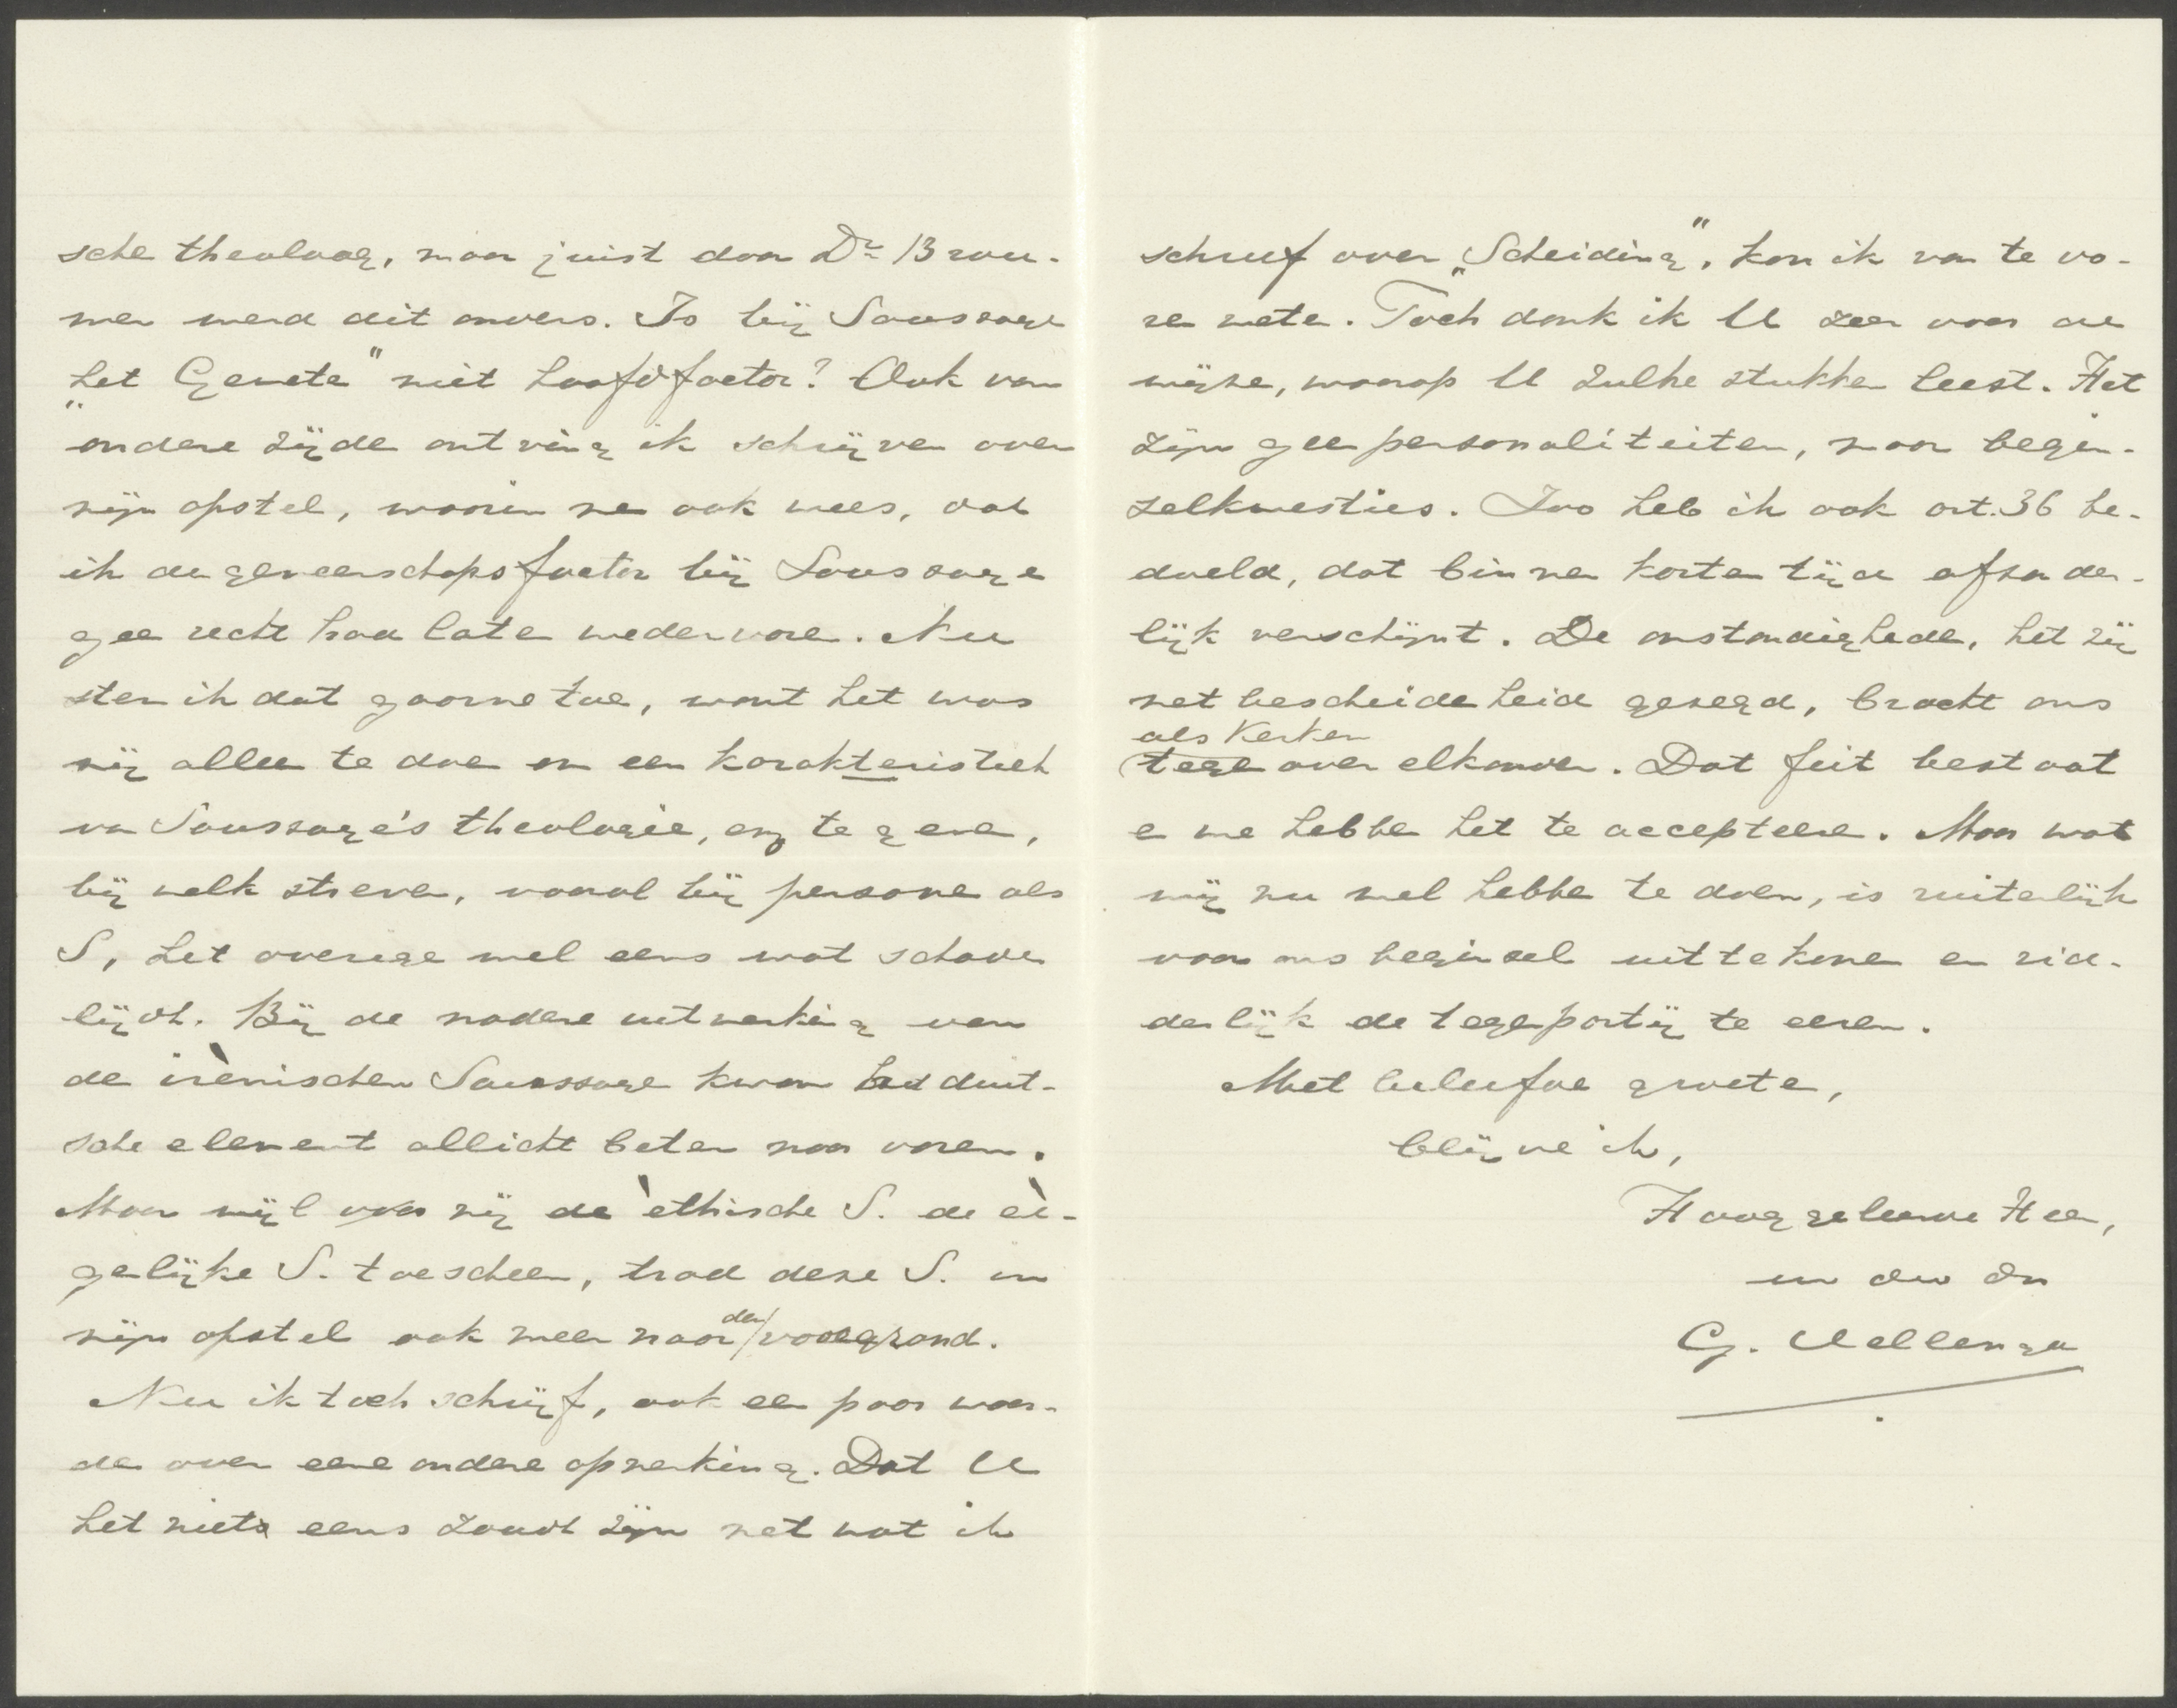 sche theoloog, maar juist door Dr. Brou-
wer werd dit anders. Is bij Saussaye
„het Geweten" niet hoofdfactor? Ook van
andere zijde ontving ik schrijven over
mijn opstel, waarin me ook wees, dat
ik de gemeenschapsfactor bij Saussaye
geen recht had laten wedervaren. Nu
stem ik dat gaarne toe, want het was
mij alleen te doen om een karakteristiek
van Saussaye's theologie, enz te geven,
bij welk streven, vooral bij personen als
S, het overige wel eens wat schade
lijdt. Bij de nadere uitwerking van
de irènischen Saussaye kwam het duit-
sche element allicht beter naar voren.
Maar wijl mij de èthische S. de ei-
gelijke S. toescheen, trad deze S. in
mijn opstel ook meer naar den voorgrond.
Nu ik toch schrijf, ook een paar woor-
den over eene andere opmerking. Dat U
het niet eens zoudt zijn met wat ik
schreef over „Scheiding", kon ik van te vo-
ren weten. Toch dank ik U zeer voor de
wijze, waarop U zulke stukken leest. Het
zijn geen personaliteiten, maar begin-
selkwesties. Zoo heb ik ook art. 36 be-
doeld, dat binnen korten tijd afzonder-
lijk verschijnt. De omstandigheden, het zij
met bescheidenheid gezegd, bracht ons
als Kerken
tegenover elkander. Dat feit bestaat
en we hebben het te accepteeren. Maar wat
wij nu wel hebben te doen, is ruiterlijk
voor ons beginsel uit te komen en rid-
derlijk de tegenpartij te eeren.
Met beleefde groeten,
blijve ik,
Hooggeleerde Heer,
uw dw dn
G. Vellenga